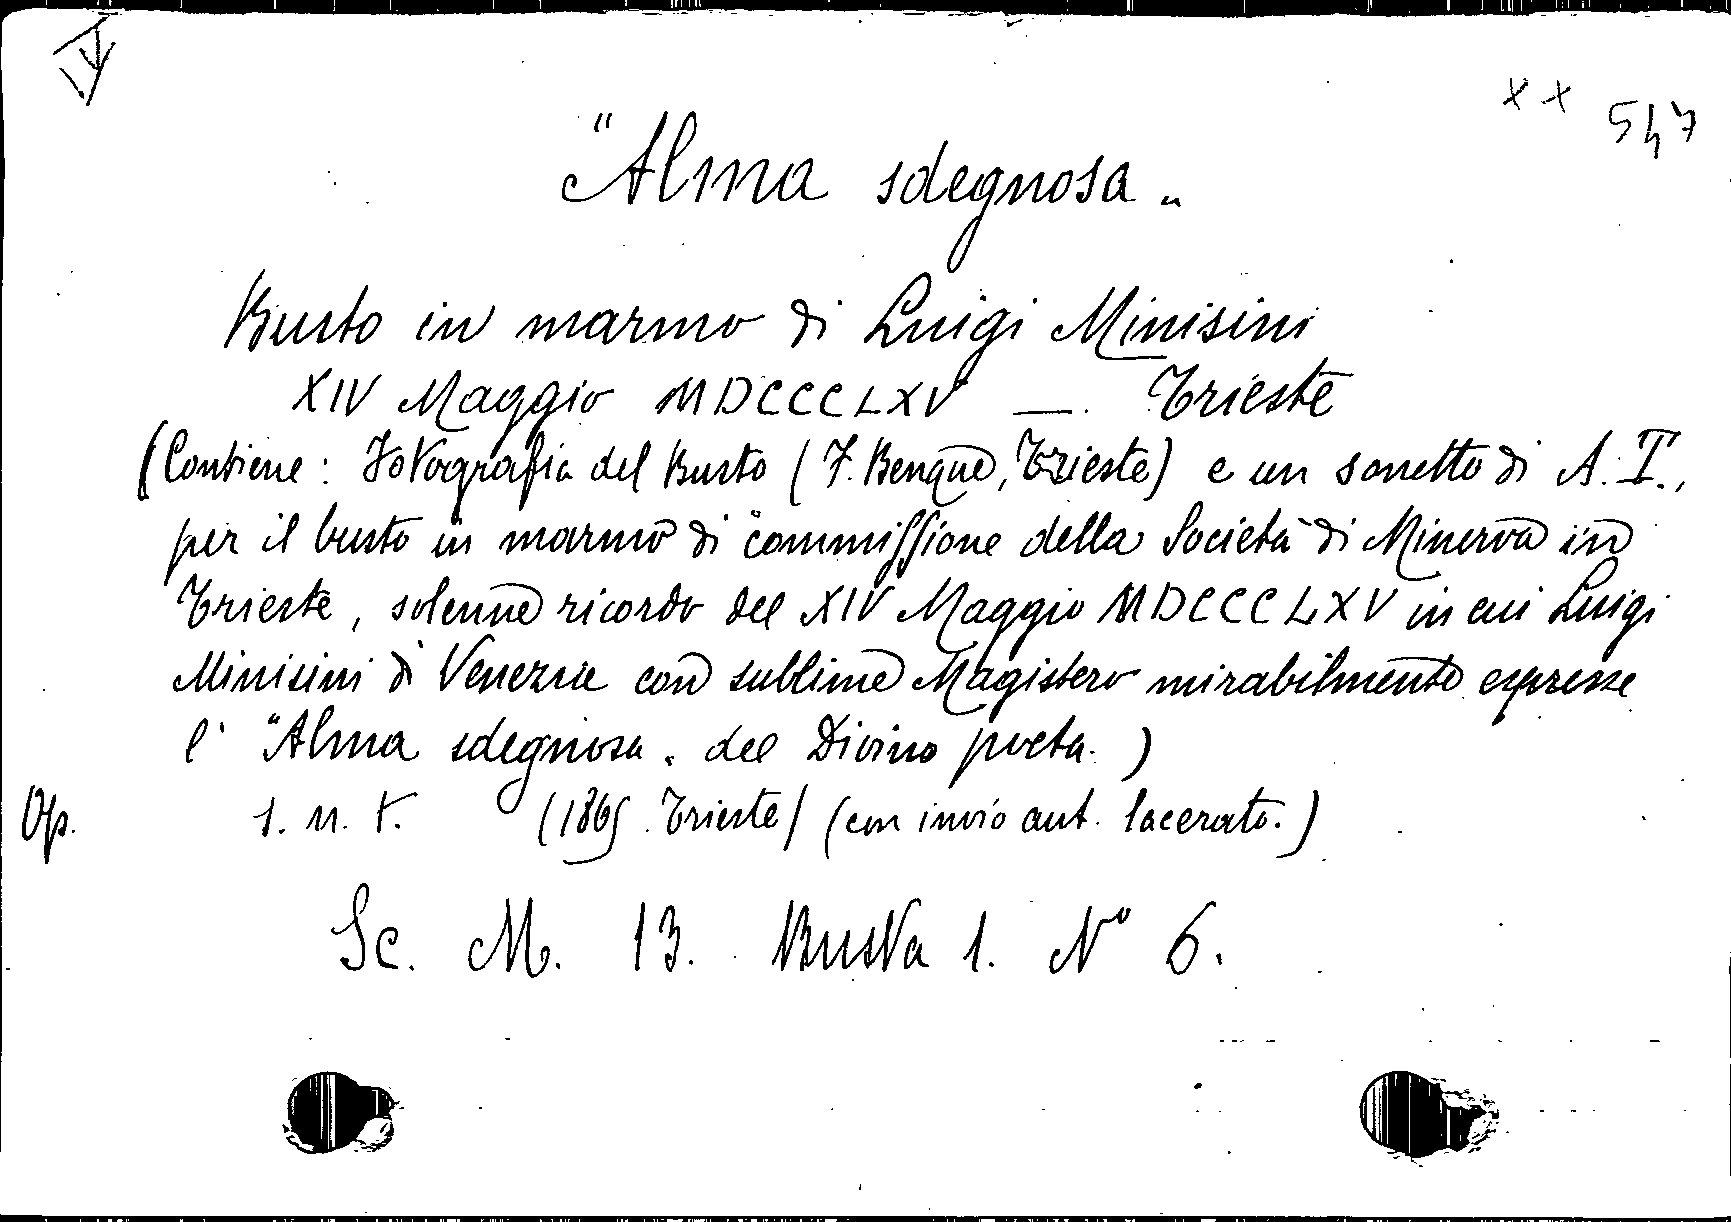 x x 547
"Alma sdegnosa„
Busto in marmo di Luigi Minisini
XIV Maggio MDCCCLXV — Trieste
(Contiene: Fotografia del Busto (F. Benque, Trieste) e un sonetto di A. T.,
per il busto in marmo di commissione della Società di Minerva in
Trieste, solenne ricordo del XIV Maggio MDCCCLXV in cui Luigi
Minisini di Venezia con sublime Magistero mirabilmente espresse
l' "Alma sdegnosa„ del Divino poeta.)
Op. s. n. t. (1865 Trieste) (con invio aut. lacerato.)
Sc. M. 13. Busta 1. N° 6.